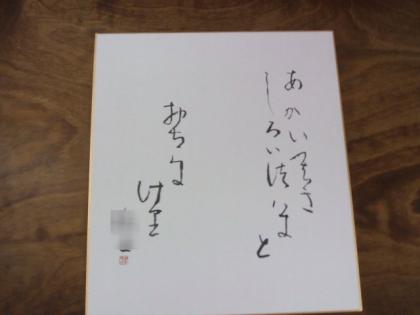 あかいつばき
しろいつばきと
おちに
けり